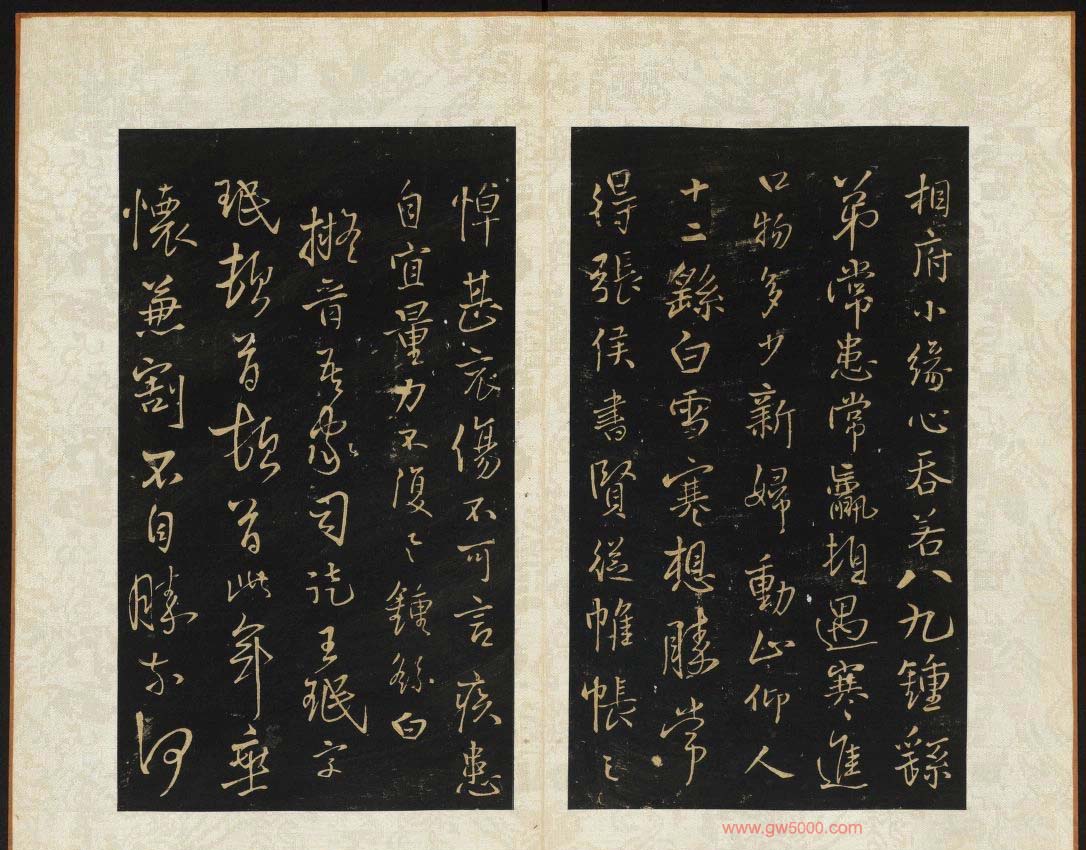 相府小緣心吞若八九鍾繇
弟常患常羸頓遇寒進
口物多少新婦動止仰人
十二繇白雪寒想勝常
得張侯書賢從帷帳之
悼甚哀傷不可言疾患
自宜量力不復々鍾繇白
擬晉吾家司徒王珉字
珉頓首頓首此年垂
懷兼割不自勝奈何
www.gw5000.com